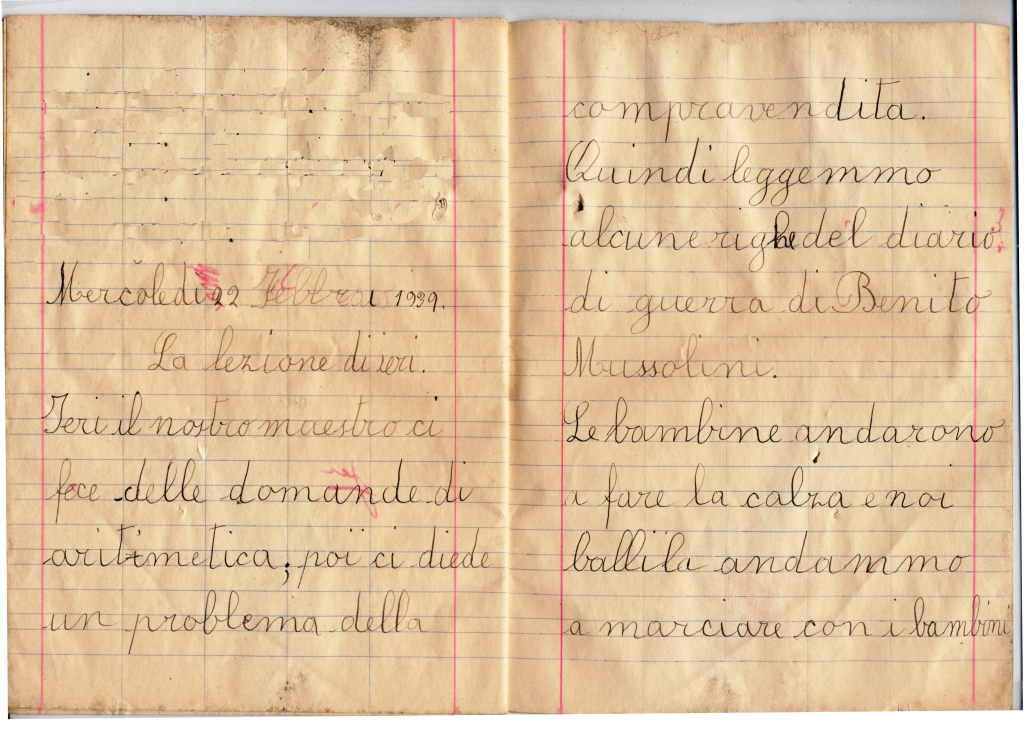 Mercoledì 22 Febbraio 1939.
La lezione di ieri.
Ieri il nostro maestro ci
fece delle domande di
aritimetica; poi ci diede
un problema della
compravendita.
Quindi leggemmo
alcune righe del diario
di guerra di Benito
Mussolini.
Le bambine andarono
a fare la calza e noi
ballila andammo
a marciare con i bambini